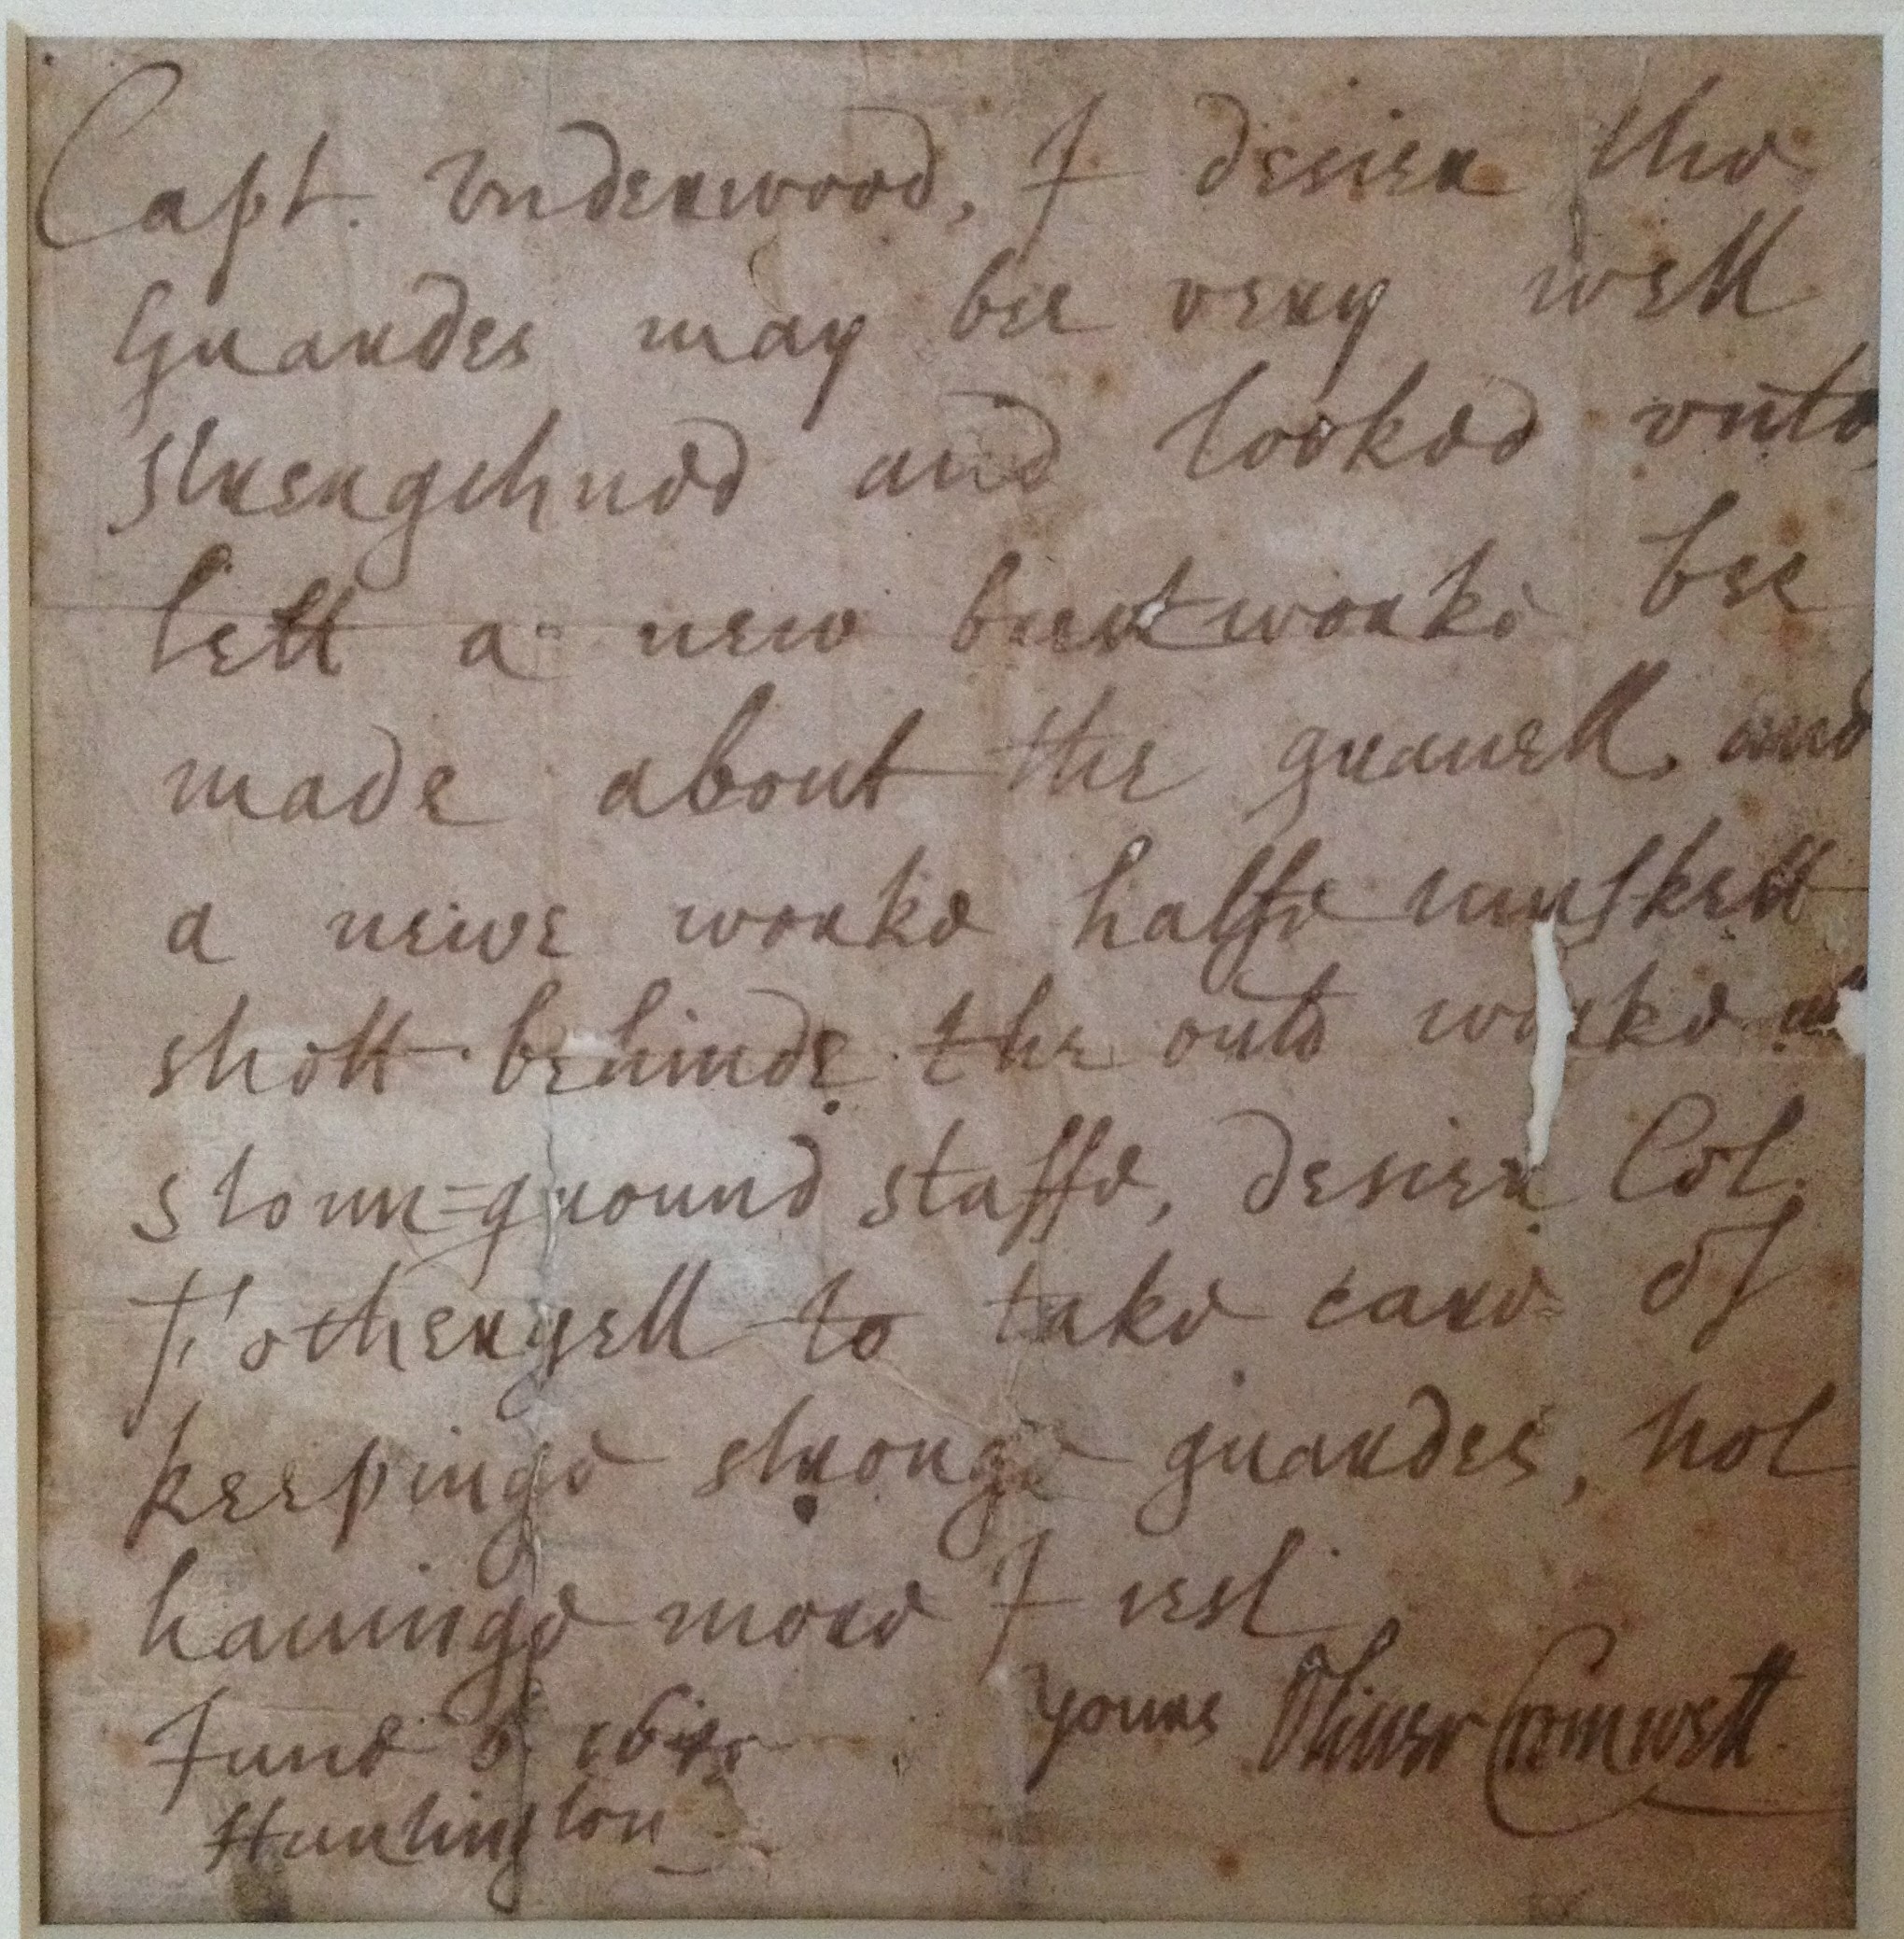 Capt. Vnderwood, I desier the
Guardes may bee very well
strengthned and looked vnto,
lett a new brestworke bee
made about the gravell, and
a newe worke halfe muskett
shott behinde the outo worke att
Storm=ground staffe, desier Col.
Fothergell to take care of
keepinge stronge guardes, not
havinge more I rest
yours Oliver Cromwell
June 6 1645
Huntington